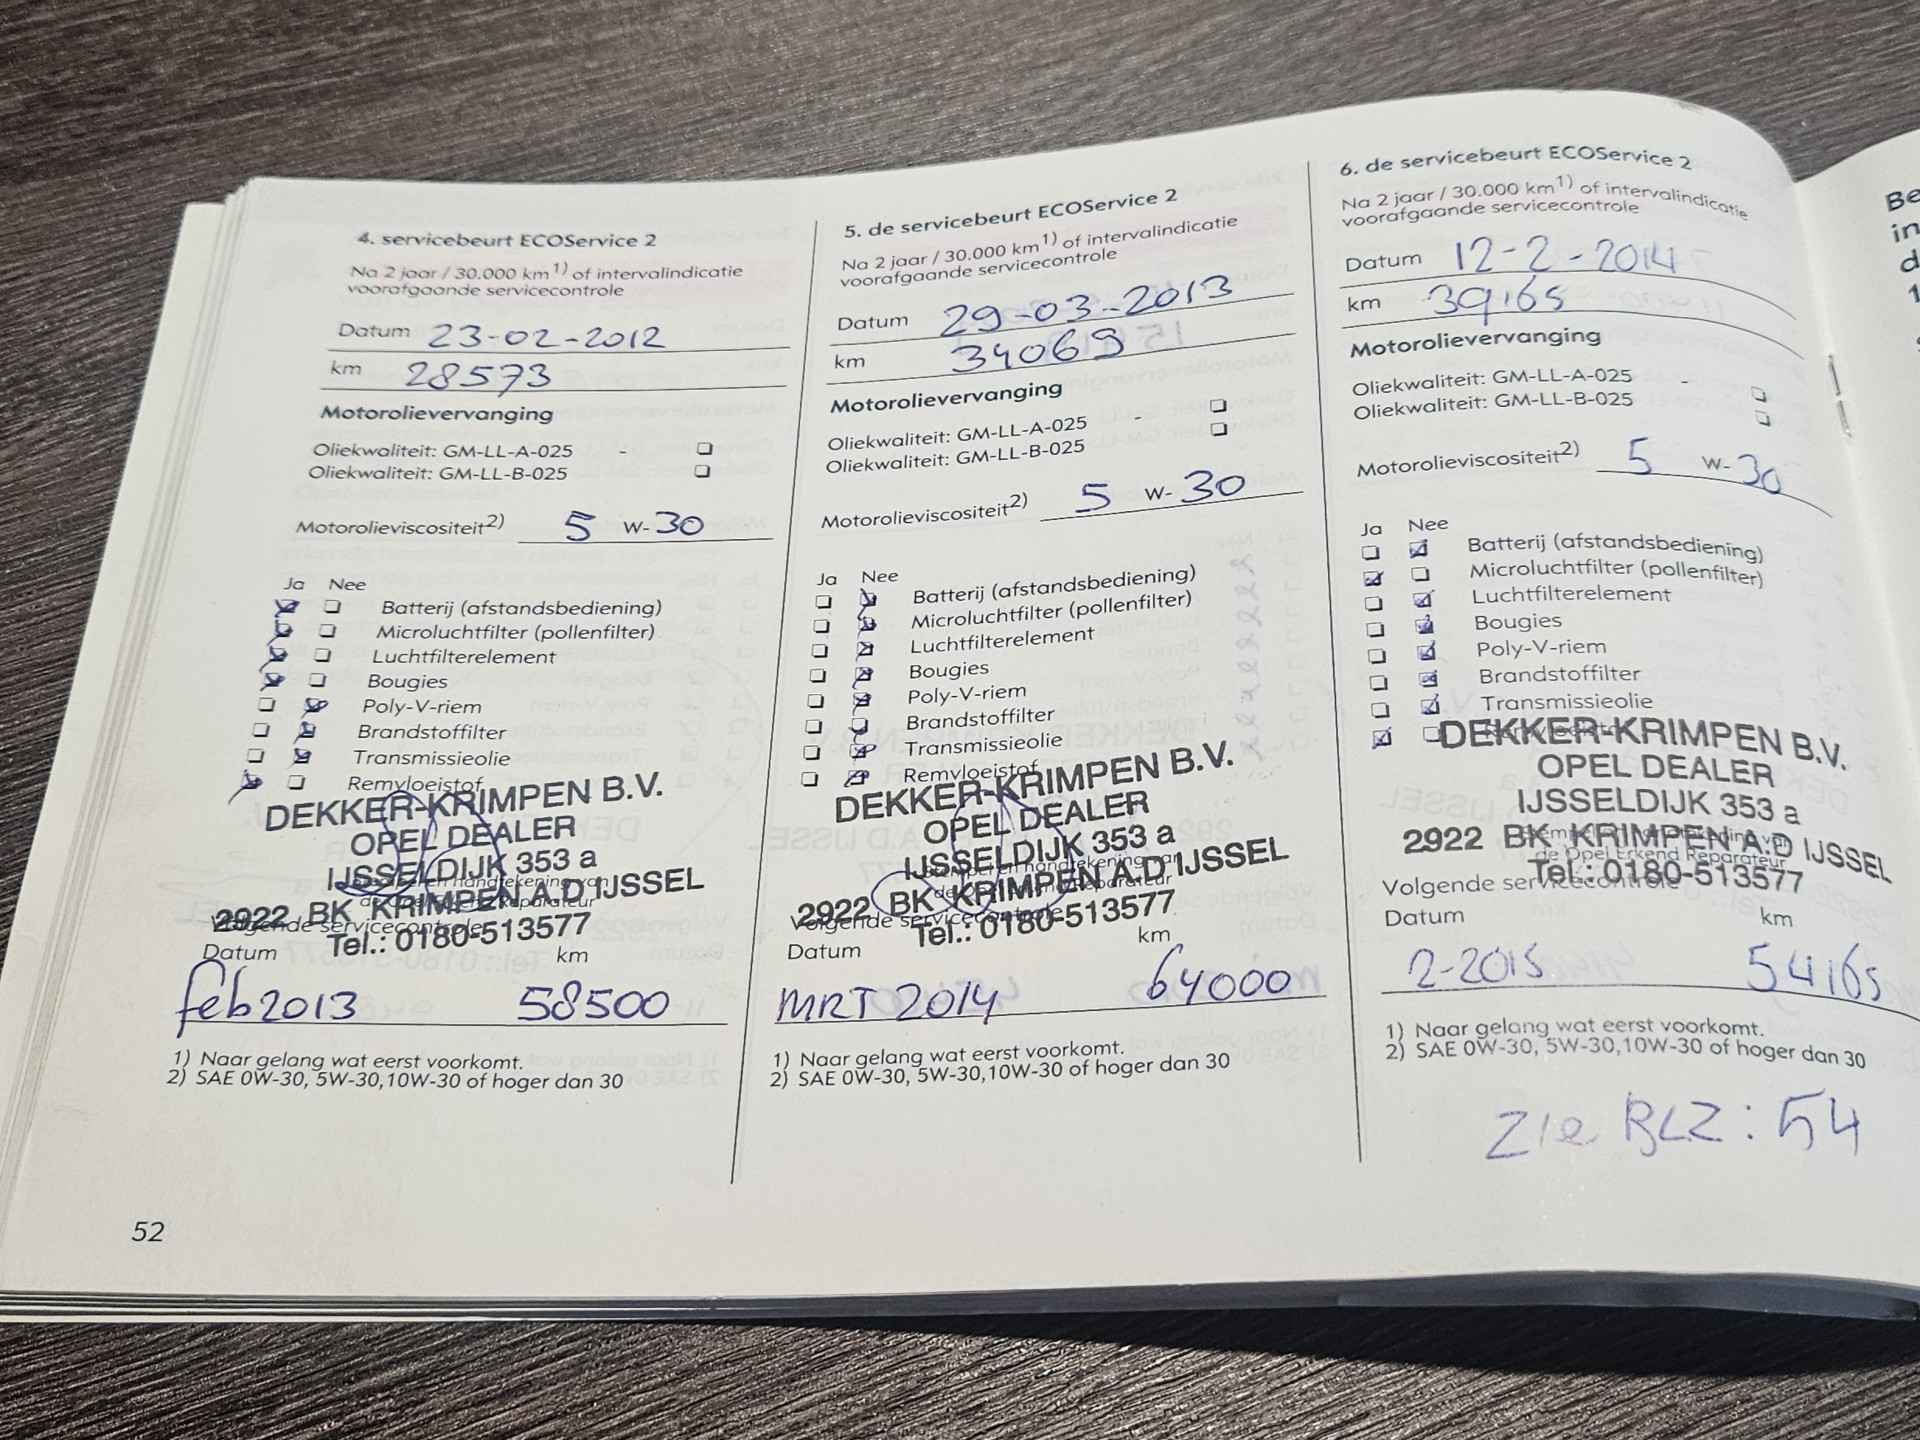 4. servicebeurt ECOService 2
Na 2 jaar / 30.000 km1) of intervalindicatie
voorafgaande servicecontrole
Datum 23-02-2012
km 28573
Motorolievervanging
Oliekwaliteit: GM-LL-A-025 -
Oliekwaliteit: GM-LL-B-025
Motorolieviscositeit2) 5 W-30
Ja Nee
Batterij (afstandsbediening)
Microluchtfilter (pollenfilter)
Luchtfilterelement
Bougies
Poly-V-riem
Brandstoffilter
Transmissieolie
Remvloeistof
DEKKER-KRIMPEN B.V.
OPEL DEALER
IJSSELDIJK 353 a
2922 BK KRIMPEN A.D IJSSEL
Tel.: 0180-513577
Volgende servicecontrole
Datum km
feb 2013 58500
1) Naar gelang wat eerst voorkomt.
2) SAE 0W-30, 5W-30,10W-30 of hoger dan 30
52
5. de servicebeurt ECOService 2
Na 2 jaar / 30.000 km1) of intervalindicatie
voorafgaande servicecontrole
Datum 29-03-2013
km 34069
Motorolievervanging
Oliekwaliteit: GM-LL-A-025 -
Oliekwaliteit: GM-LL-B-025
Motorolieviscositeit2) 5 W-30
Ja Nee
Batterij (afstandsbediening)
Microluchtfilter (pollenfilter)
Luchtfilterelement
Bougies
Poly-V-riem
Brandstoffilter
Transmissieolie
Remvloeistof
DEKKER-KRIMPEN B.V.
OPEL DEALER
IJSSELDIJK 353 a
2922 BK KRIMPEN A.D IJSSEL
Tel.: 0180-513577
Volgende servicecontrole
Datum km
MRT 2014 64000
1) Naar gelang wat eerst voorkomt.
2) SAE 0W-30, 5W-30,10W-30 of hoger dan 30
6. de servicebeurt ECOService 2
Na 2 jaar / 30.000 km1) of intervalindicatie
voorafgaande servicecontrole
Datum 12-2-2014
km 39165
Motorolievervanging
Oliekwaliteit: GM-LL-A-025 -
Oliekwaliteit: GM-LL-B-025
Motorolieviscositeit2) 5 W-30
Ja Nee
Batterij (afstandsbediening)
Microluchtfilter (pollenfilter)
Luchtfilterelement
Bougies
Poly-V-riem
Brandstoffilter
Transmissieolie
DEKKER-KRIMPEN B.V.
OPEL DEALER
IJSSELDIJK 353 a
2922 BK KRIMPEN A.D IJSSEL
de Opel Erkend Reparateur
Tel.: 0180-513577
Volgende servicecontrole
Datum km
2-2015 54165
1) Naar gelang wat eerst voorkomt.
2) SAE 0W-30, 5W-30,10W-30 of hoger dan 30
Zie BLZ: 54